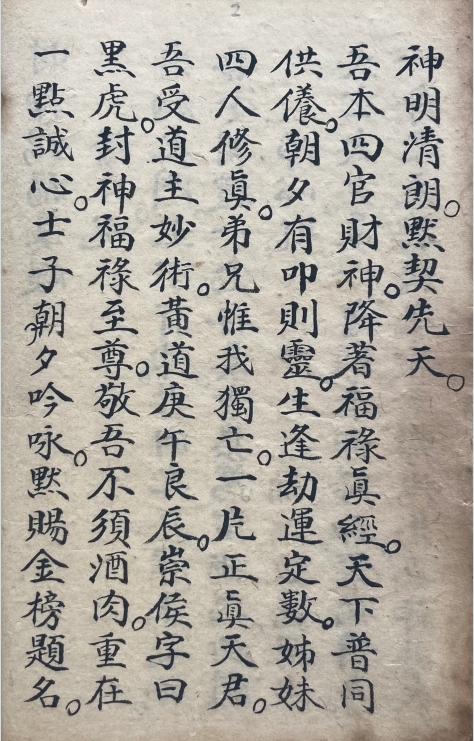 2
神明清朗。默契先天。
吾本四官財神。降著福祿眞經。天下普同
供養。朝夕有叩則靈。生逢劫運定數。姊妹
四人修眞。弟兄惟我獨亡。一片正眞天君。
吾受道主妙術。黃道庚午良辰。崇侯字曰
黑虎。封神福祿至尊。敬吾不須酒肉。重在
一點誠心。士子朝夕吟咏。默賜金榜題名。